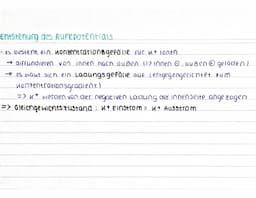 Entstehung des Ruhepotentials
- es besteht ein Konzentrationsgefälle für K+ Ionen
→ diffundieren von innen nach außen (=> innen ⊖, außen ⊕ geladen)
→ es baut sich ein Ladungsgefälle auf (entgegengerichtet zum
Konzentrationsgradient)
=> K+ werden von der negativen Ladung der Innenseite angezogen
=> Gleichgewichtszustand: K+ Einstrom = K+ Ausstrom